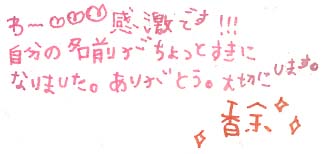 わー♡♡♡感激です!!!
自分の名前がちょっとすきに
なりました。ありがとう。大切にします。
香余